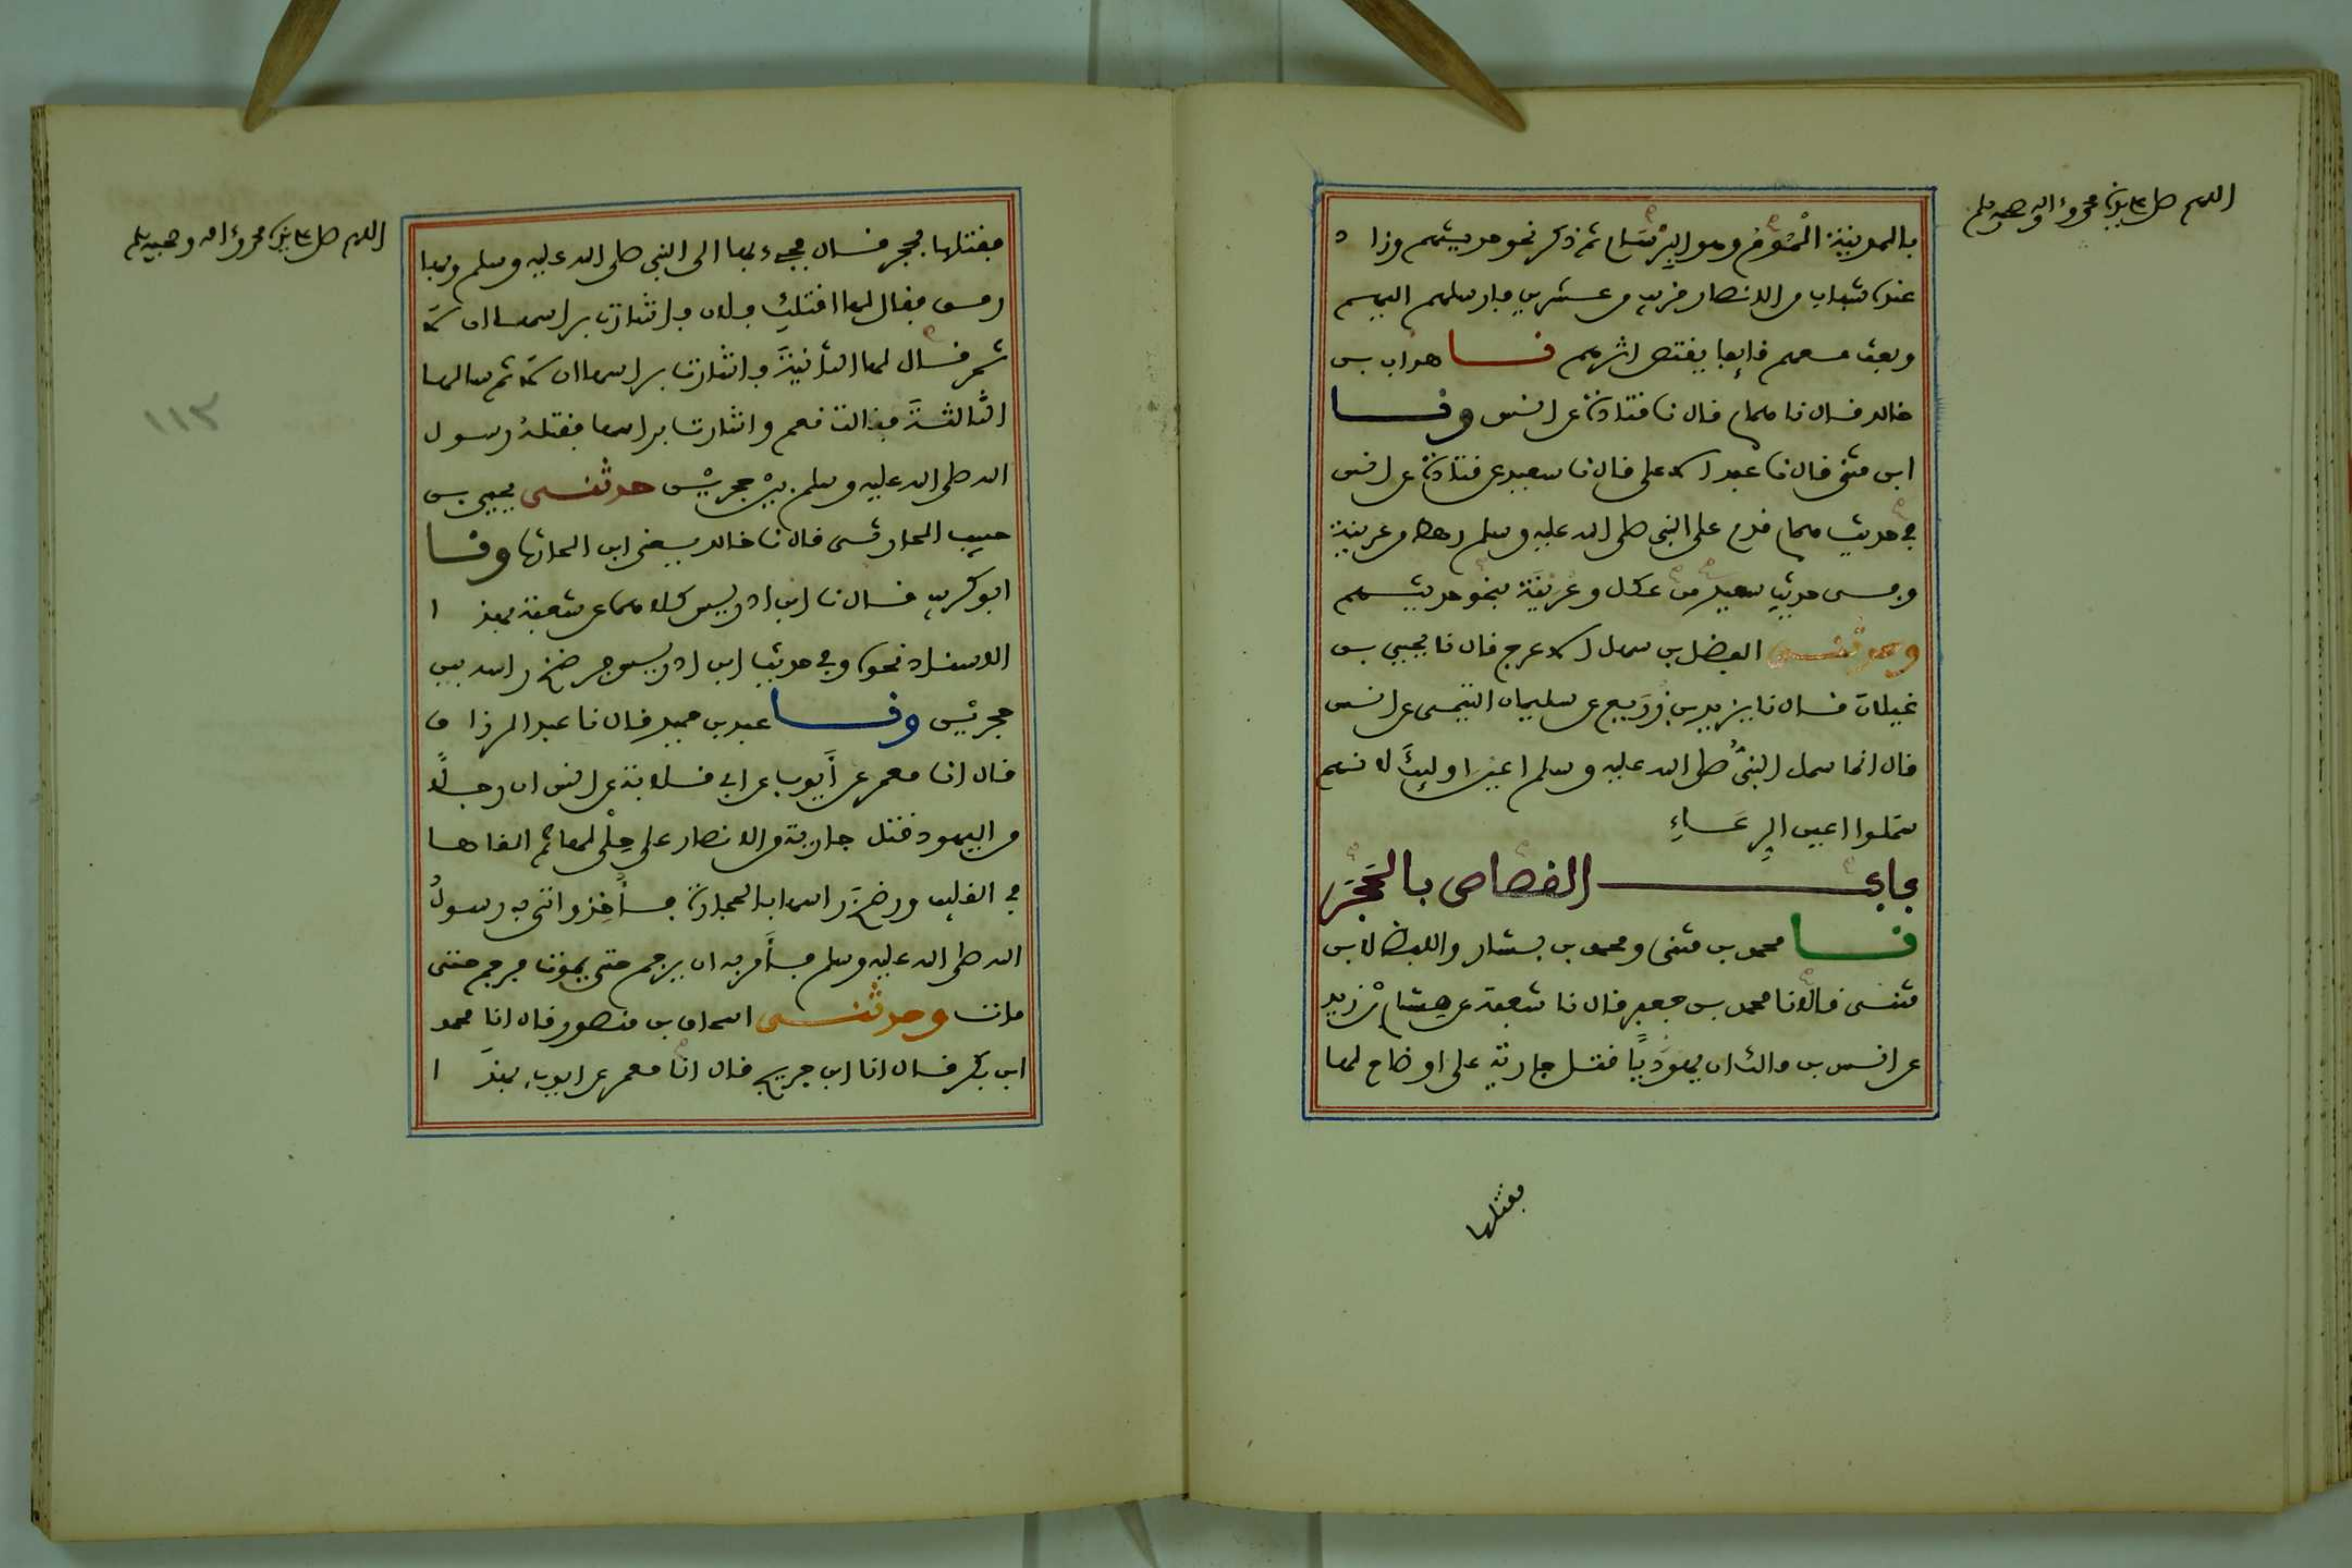 اللهم صل على سيدنا محمد وءاله وصحبه وسلم
بالمدينة الْمُومُ وهو البِرْسَام ثم ذكر نحو حديثهم وزاد
عنده شباب من الانصار قريب من عشرين فارسلهم اليهم
وبعث معهم قايفا يقتص اثرهم نا هداب بن
خالد قال نا همام قال نا قتادة عن انس ونا
ابن مثنى قال نا عبد الاعلى قال نا سعيد عن قتادة عن انس
في حديث همام قدم على النبي صلى الله عليه وسلم رهط من عرينة
وفي حديث سعيد من عكل وعُرينَة بنحو حديثهم
وحدثنى الفضل بن سهل الاعرج قال نا يحيى بن
غيلان قال نا يزيد بن زُرَيع عن سليمان التيمى عن انس
قال انما سمل النبىُّ صلى الله عليه وسلم اعين اوليٕكَ لانهم
سملوا اعين الرِعَاءِ
باب القصاص بالحَجَرِ
نا محمد بن مثنى ومحمد بن بشار واللفظ لابن
مثنى قالا نا محمد بن جعفر قال نا شعبة عن هِشام بْن زيد
عن انس بن مالك ان يهوديًا قتل جارية على اوضاح لها
فقتلها
اللهم صل على سيدنا محمد وءاله وصحبه وسلم
فقتلها بحجر قال فجيء بها الى النبي صلى الله عليه وسلم وبها
رمق فقال لها اقتلكِ فلان فاشارت براسها ان لا
ثم قال لها الثانيةَ فاشارت براسها ان لا ثم سالها
الثالثةَ فقالت نعم واشارت براسها فقتلهُ رسول
الله صلى الله عليه وسلم بيْن حجريْن حدثنى يحيى بن
حبيب الحارثى قال نا خالد يعنى ابن الحارث ونا
ابو كريب قال نا ابن ادريس كلاهما عن شعبة بهذا
الاسناد نحوه وفي حديث ابن ادريس فرضخ راسه بين
حجريْن ونا عبد بن حميد قال نا عبد الرزاق
قال انا معمر عن أيوب عن ابي قلابة عن انس ان رجلاً
من اليهود قتل جارية من الانصار على حلْي لها ثم القاها
في القليب ورضَخ راسها بالحجارة فأُخِذ واتى به رسولُ
الله صلى الله عليه وسلم فأَمر به ان يرجم حتى يموت فرجم حتى
مات وحدثنى اسحاق بن منصور قال انا محمد
ابن بكر قال انا ابن جريج قال انا معمر عن ايوب بهذَا
١١٣